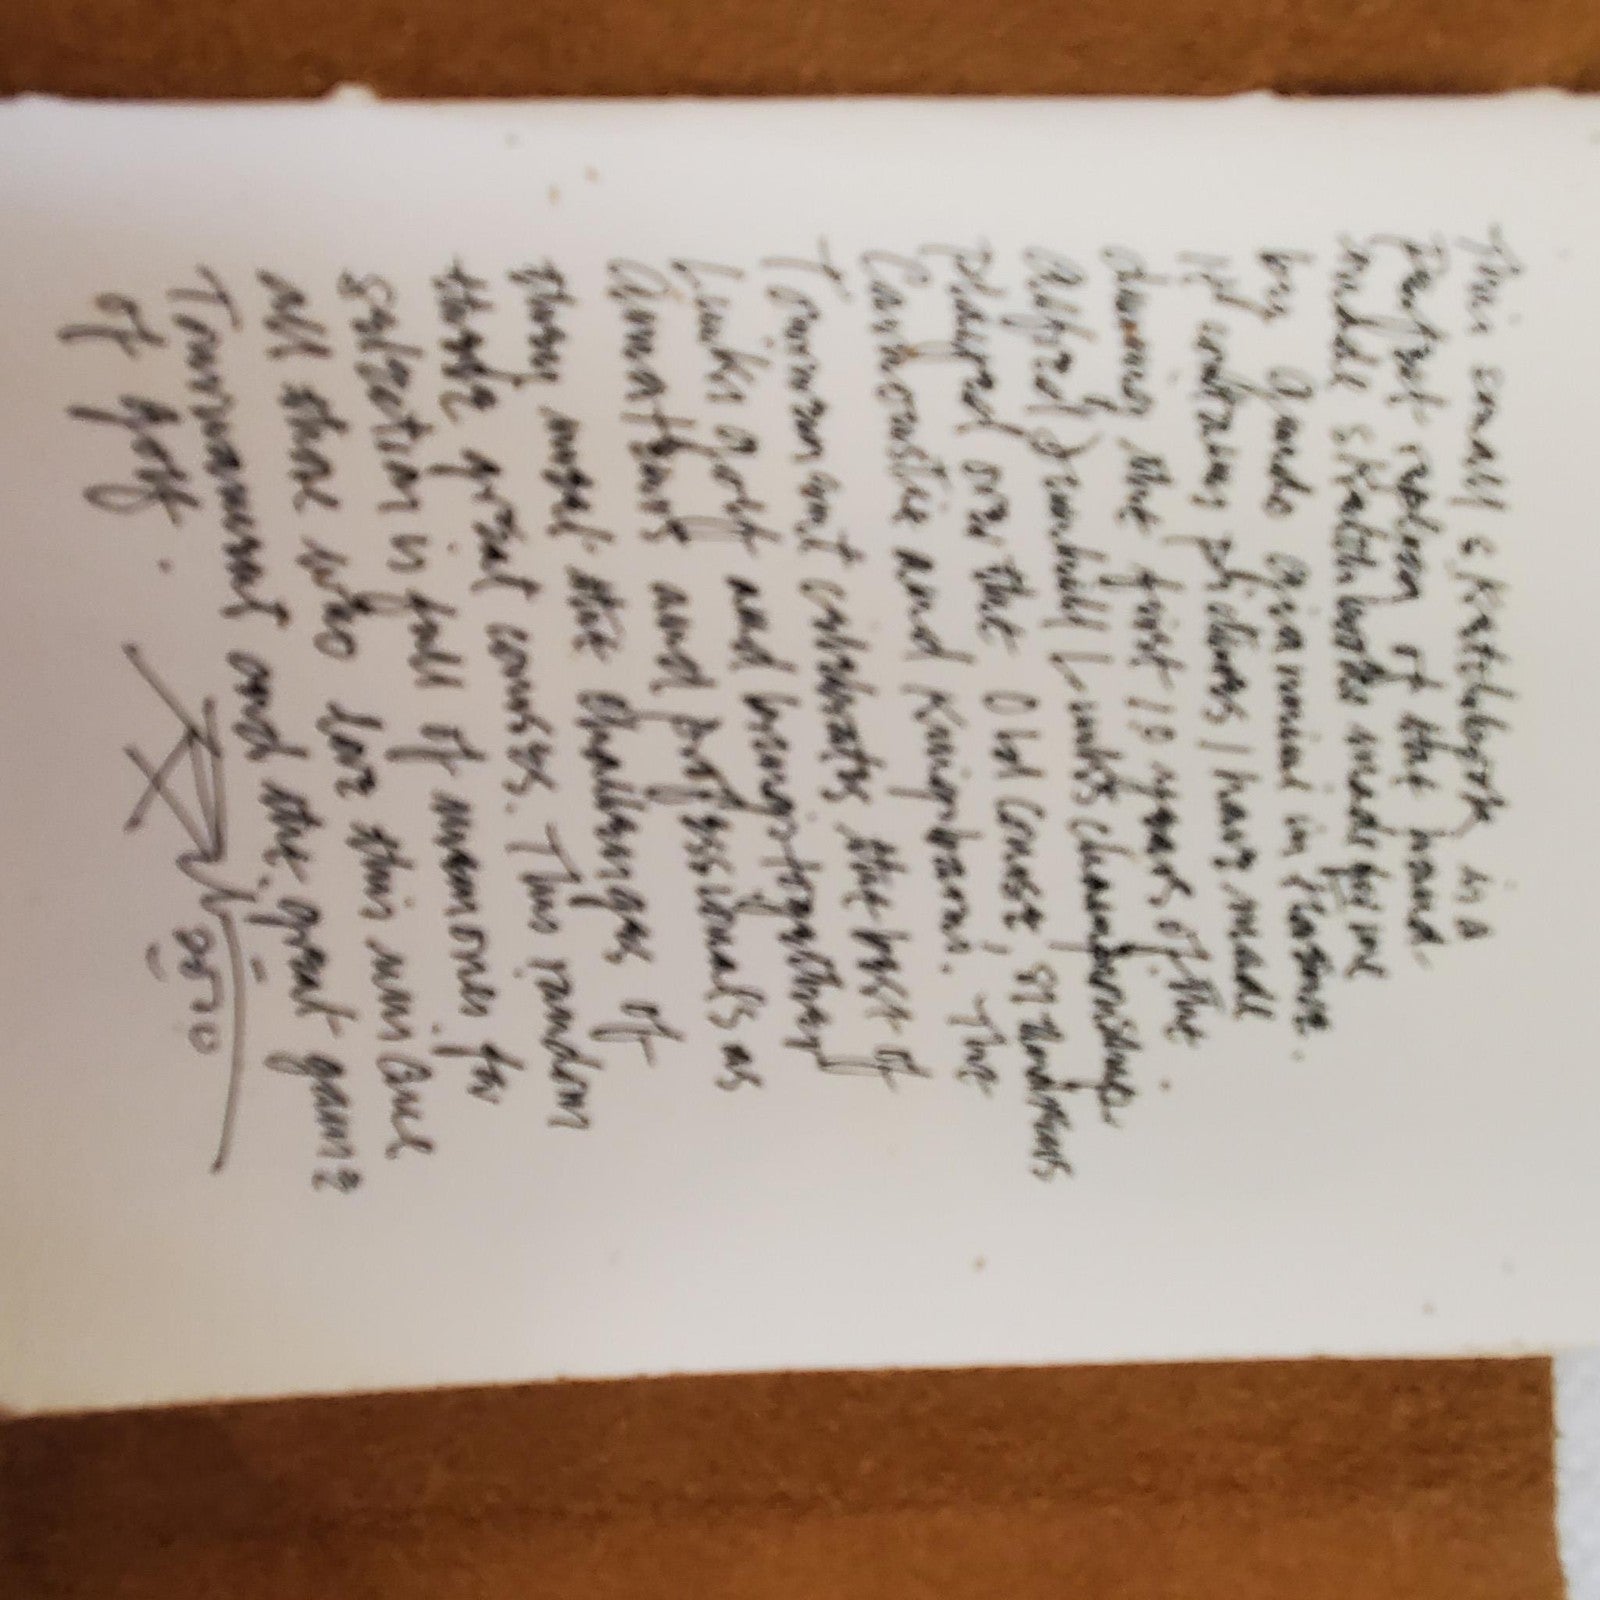 This small sketchbook is a
perfect replica of the hand-
made sketchbooks made for me
by Guido Giannini in Florence.
It contains pictures I have made
during the first 10 years of the
Alfred Dunhill Links Championship
played over the Old Course, St Andrews
Carnoustie and Kingsbarns. The
Tournament celebrates the best of
Links golf and brings together
Amateurs and professionals as
they meet the challenges of
these great courses. This random
selection is full of memories for
all those who love this unique
Tournament and the great game
of golf.
2010